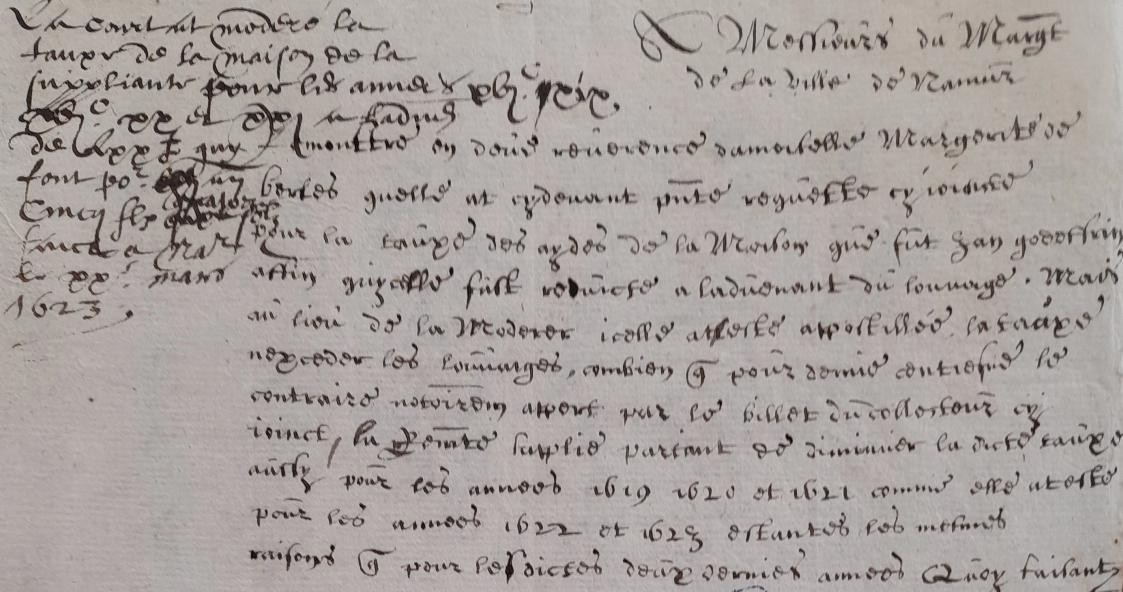 La court at modéré la
tauxe de la maison de la
suppliante pour les annees xvjc xix,
xx et xxj a
de
font por
Cincq
faict a Nar
le xxe mars
1623,
A Messieurs du Margt
de la ville de Namur
Remonttre en deue reverence damoiselle Margerite de
bertes quelle at cydevant pnte requette cy joincte
pour la tauxe des aydes de la Maison que fut Jan godeffrin
affin quycelle fust reduicte a ladvenant du louwage. Mais
au lieu de la Moderer icelle at este appostillee la tauxe
nexceder les louwages, combien q pour demie centiesme le
contraire notoirem appert par le billet du collecteur cy
joinct, la Remte supplie partant de diminuer la dicte tauxe
aussy pour les annees 1619 1620 et 1621 comme elle at este
pour les annees 1622 et 1623 estantes les mesmes
raisons q pour les dictes deux dernieres annees Quoy faisant